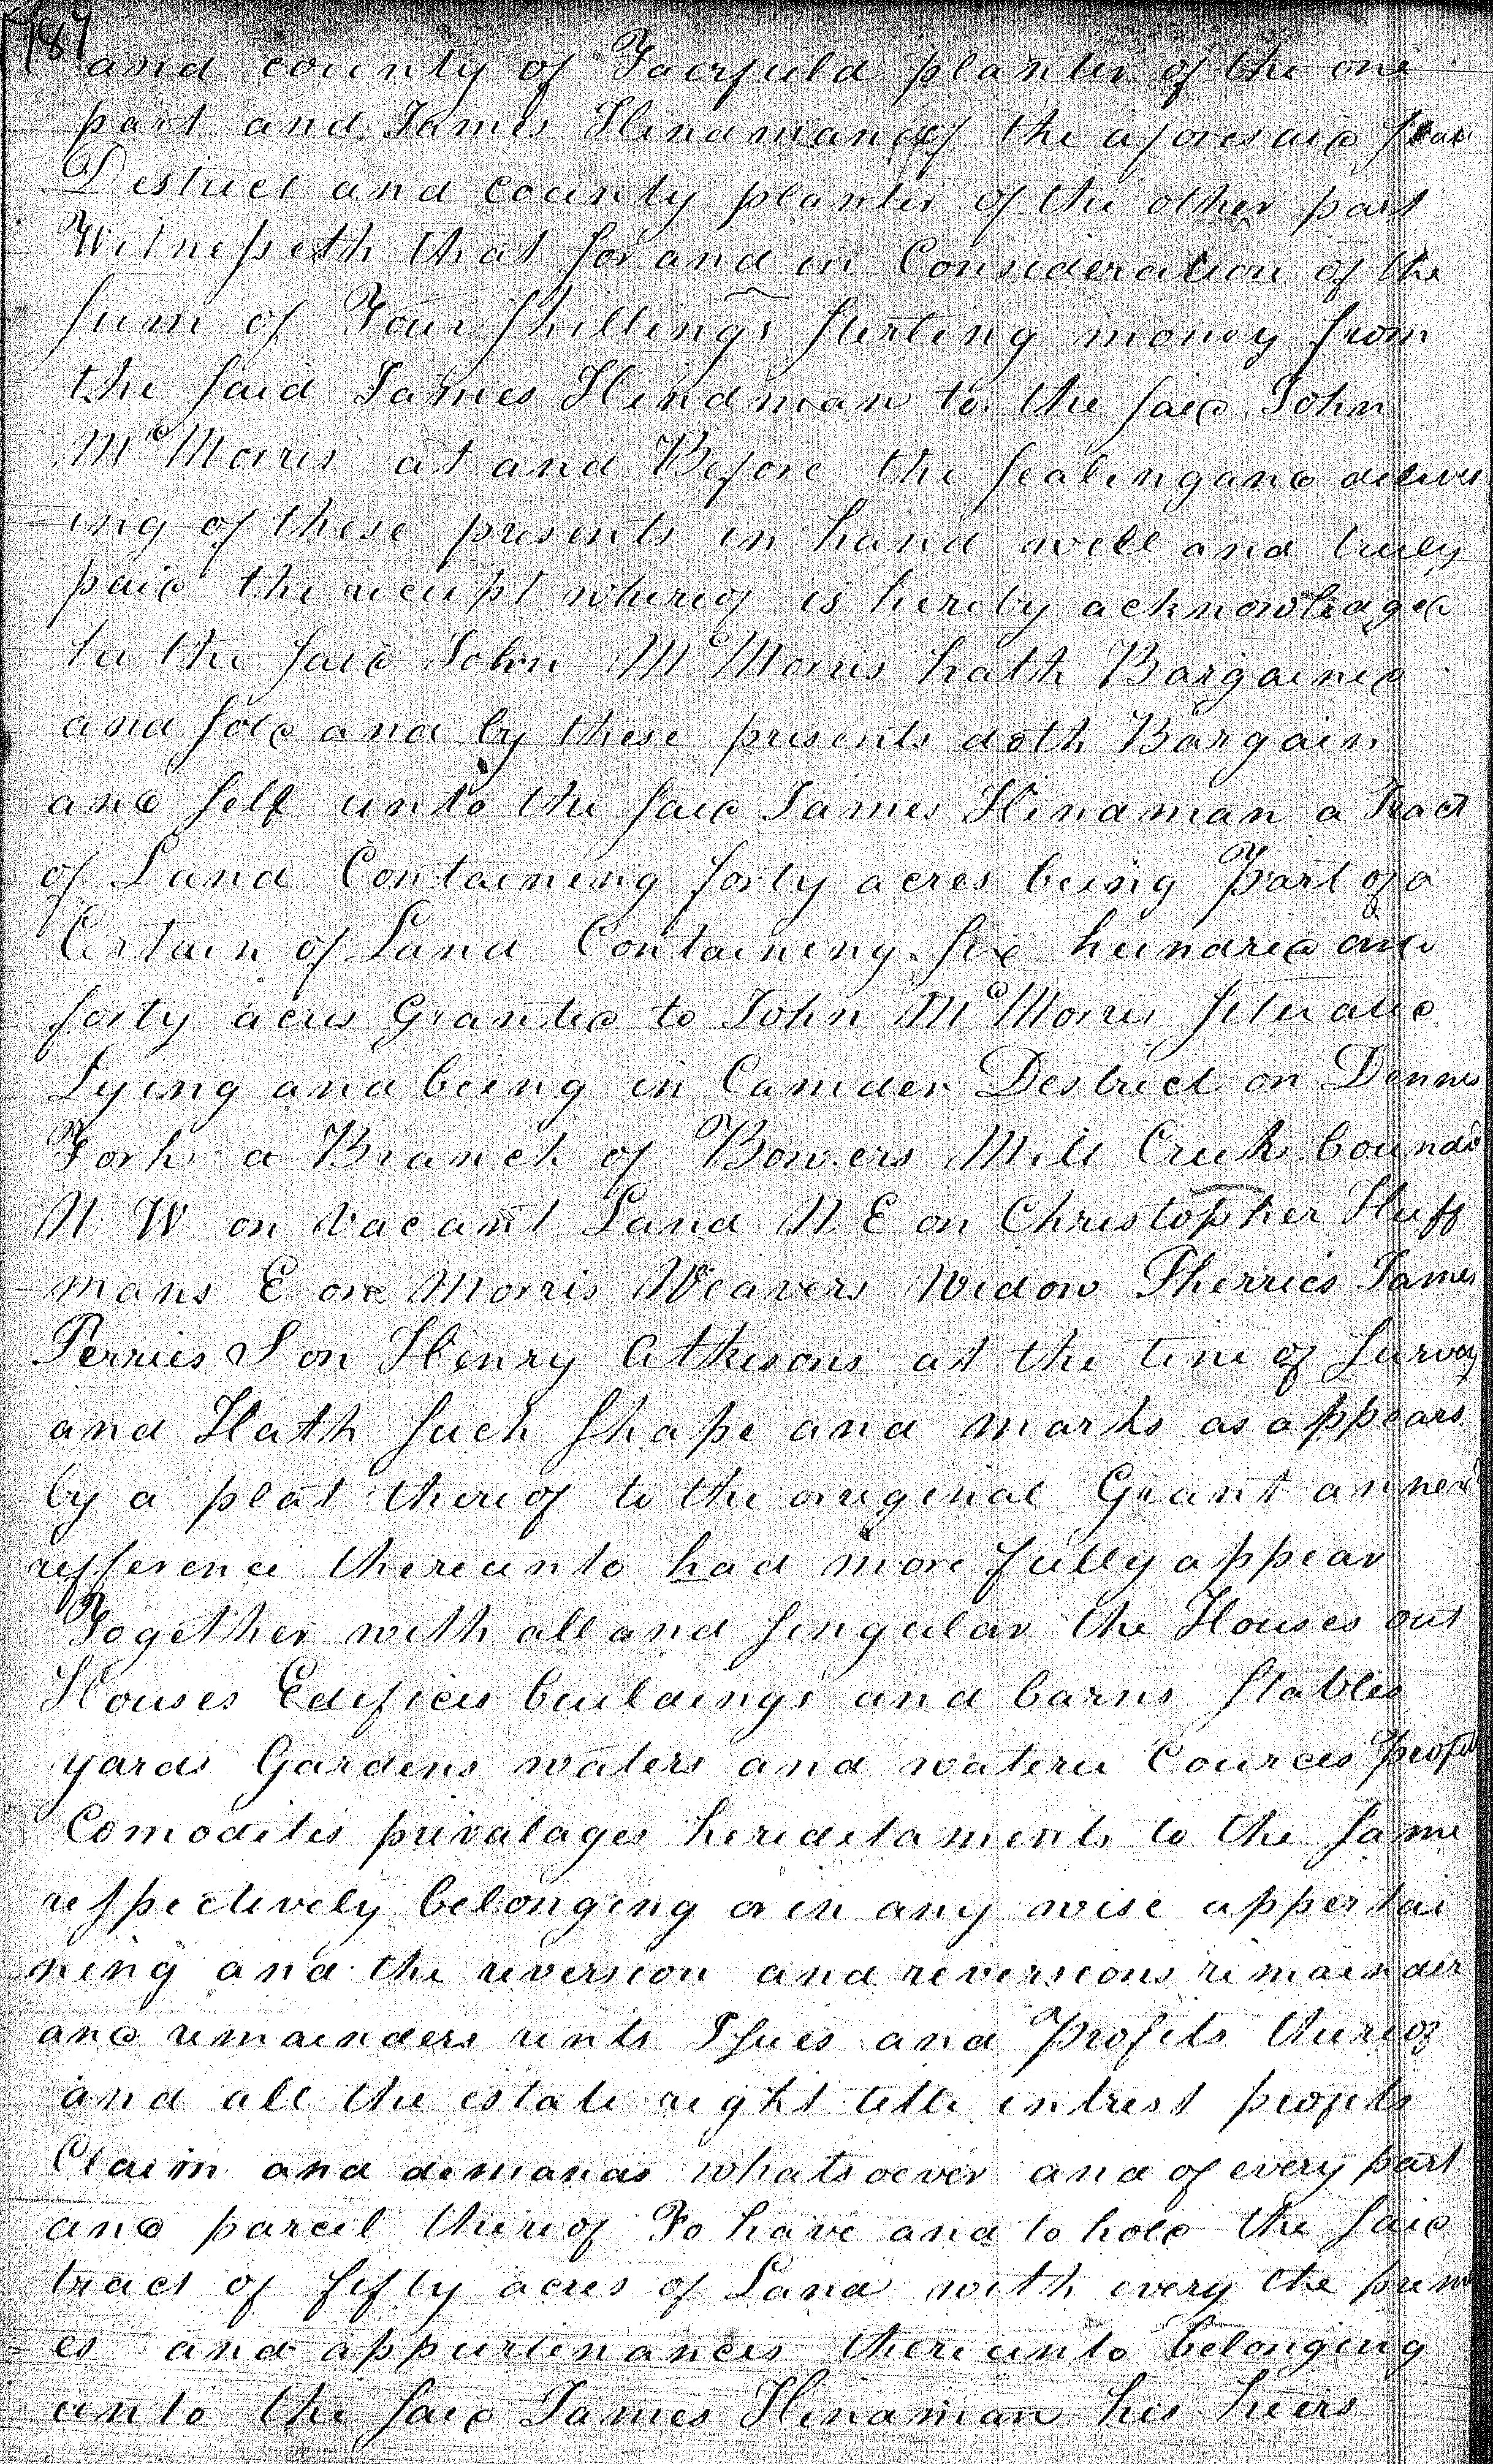 187
and county of Fairfield planter of the one
part and James Hindman of the aforesaid State
District and county planter of the other part
Witnesseth that for and in Consideration of the
Sum of Four Shillings Sterling money from
the Said James Hindman to the Said John
McMorris at and Before the Sealing and deliver
ing of these presents in hand well and truly
paid the receipt whereof is hereby acknowledged
he the Said John McMorris hath Bargained
and Sold and by these presents doth Bargain
and Sell unto the Said James Hindman a Tract
of Land Containing forty acres being Part of a
Certain of Land Containing Six hundred and
forty acres Granted to John McMorris Situated
Lying and being in Camden District on Dennis
Fork a Branch of Bowers Mill Creek bounded
N W on Vacant Land N E on Christopher Huff
mans E on Morris Weavers Widow Pherries James
Perries S on Henry Atkisons at the time of Survey
and Hath Such Shape and marks as appears
by a plat thereof to the original Grant annexd
refference thereunto had more fully appear
Together with all and Singular the Houses out
Houses Edifices buildings and barns Stables
yards Gardens waters and water Cources Profits
Comodites privalages hereditaments to the Same
respectively belonging or in any wise appertai
ning and the reversion and reversions remainder
and remainders rents Issues and Profits thereof
and all the estate right title intrest profits
Claim and demands whatsoever and of every part
and parcel thereof To have and to hold the Said
tract of fifty acres of Land with every the prem
es and appurtinances thereunto belonging
unto the Said James Hindman his heirs